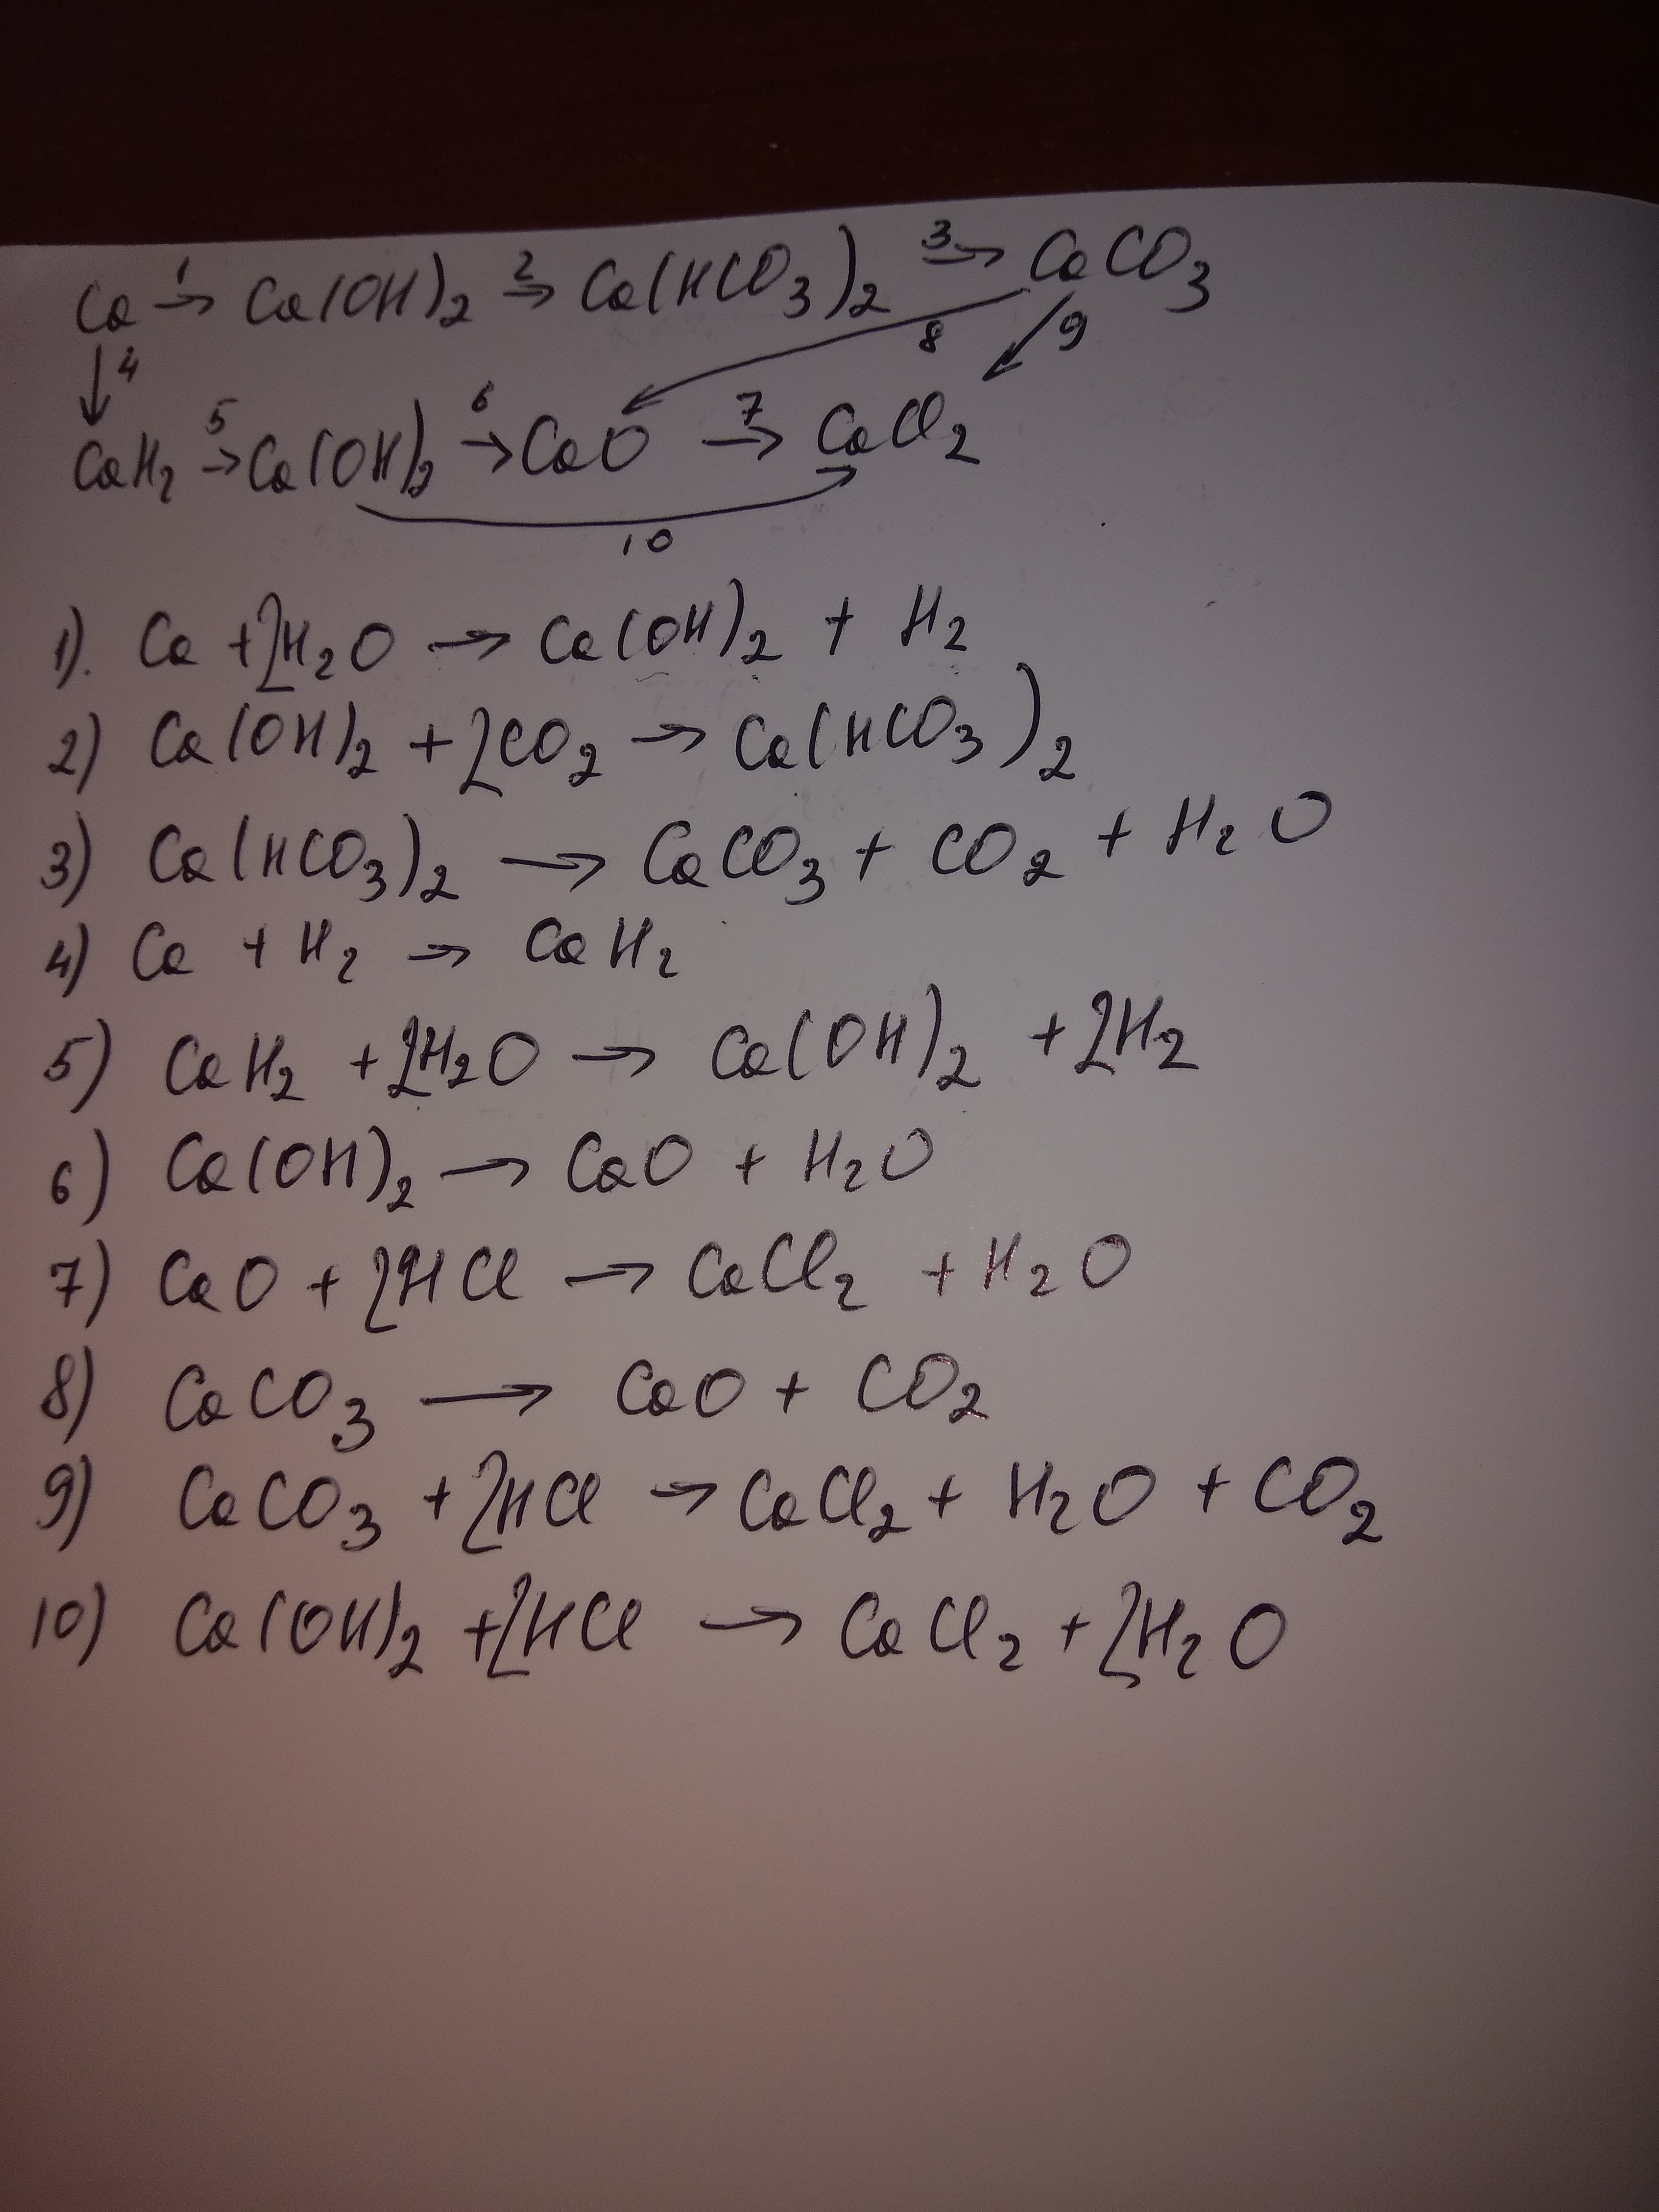 Ca 1→ Ca(OH)2 2→ Ca(HCO3)2 3→ CaCO3
↓4 8 9
CaH2 5→ Ca(OH)2 6→ CaO 7→ CaCl2
10
1). Ca + 2H2O → Ca(OH)2 + H2
2) Ca(OH)2 + 2CO2 → Ca(HCO3)2
3) Ca(HCO3)2 → CaCO3 + CO2 + H2O
4) Ca + H2 → CaH2
5) CaH2 + 2H2O → Ca(OH)2 + 2H2
6) Ca(OH)2 → CaO + H2O
7) CaO + 2HCl → CaCl2 + H2O
8) CaCO3 → CaO + CO2
9) CaCO3 + 2HCl → CaCl2 + H2O + CO2
10) Ca(OH)2 + 2HCl → CaCl2 + 2H2O